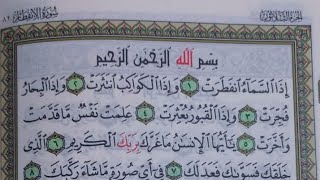 الجزء الثلاثون سورة الانفطار ٨٢
بِسْمِ اللَّهِ الرَّحْمَٰنِ الرَّحِيمِ
إِذَا السَّمَاءُ انْفَطَرَتْ ١ وَإِذَا الْكَوَاكِبُ انْتَثَرَتْ ٢ وَإِذَا الْبِحَارُ
فُجِّرَتْ ٣ وَإِذَا الْقُبُورُ بُعْثِرَتْ ٤ عَلِمَتْ نَفْسٌ مَا قَدَّمَتْ
وَأَخَّرَتْ ٥ يَٰأَيُّهَا الْإِنْسَٰنُ مَا غَرَّكَ بِرَبِّكَ الْكَرِيمِ ٦ الَّذِي
خَلَقَكَ فَسَوَّىٰكَ فَعَدَلَكَ ٧ فِي أَيِّ صُورَةٍ مَا شَاءَ رَكَّبَكَ ٨